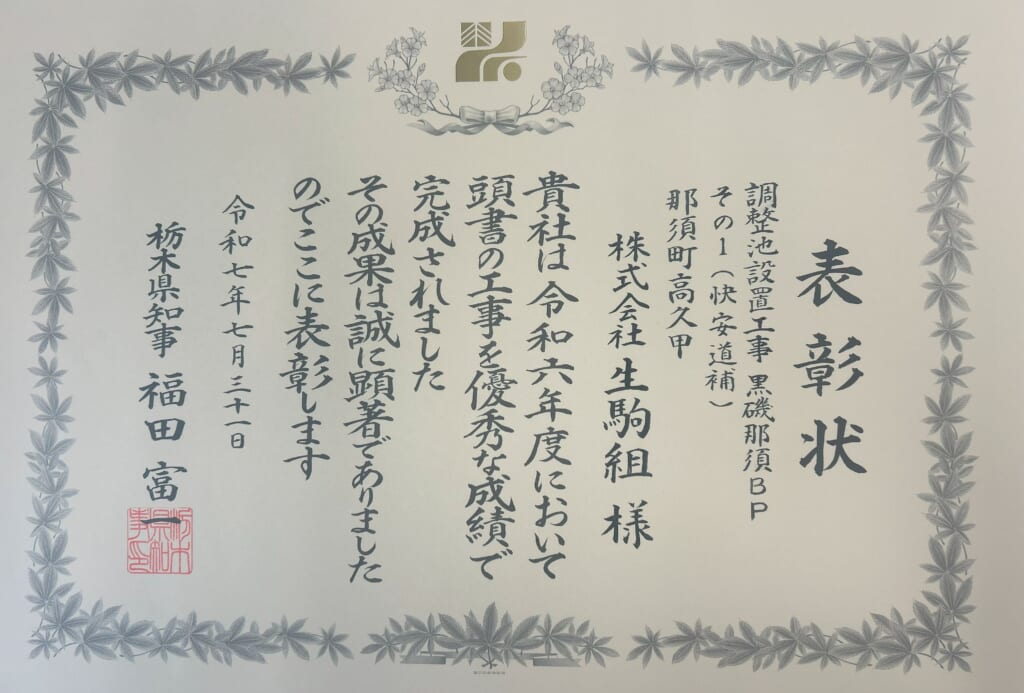 表彰状
調整池設置工事 黒磯那須BP
その1(快安道補)
那須町高久甲
株式会社 生駒組 様
貴社は令和六年度において
頭書の工事を優秀な成績で
完成されました
その成果は誠に顕著でありました
のでここに表彰します
令和七年七月三十一日
栃木県知事 福田 富一
栃木
県知
事印